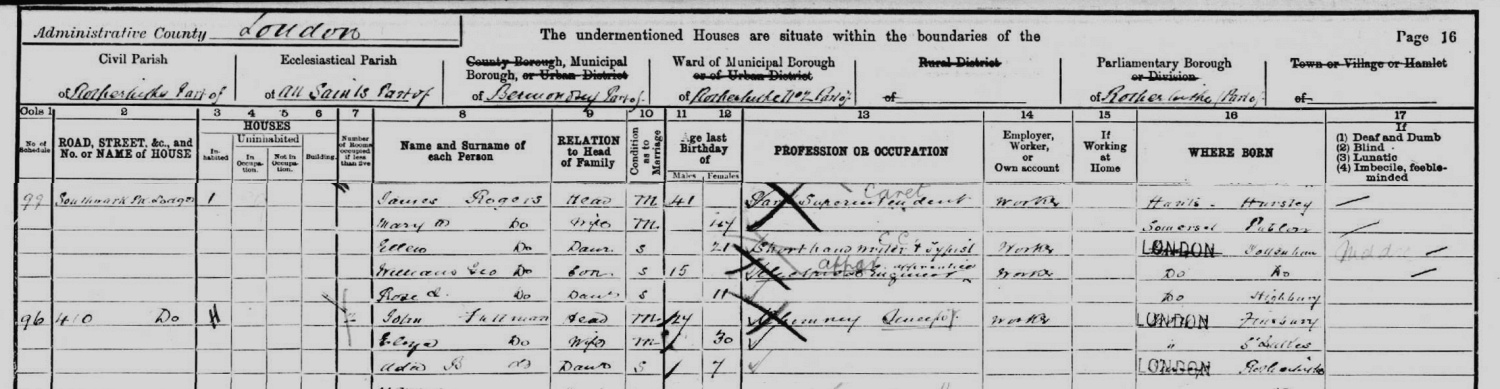 Administrative County London The undermentioned Houses are situate within the boundaries of the Page 16
Civil Parish Ecclesiastical Parish County Borough, Municipal Borough, or Urban District Ward of Municipal Borough or of Urban District Rural District Parliamentary Borough or Division Town or Village or Hamlet
of Rotherhithe Part of of All Saints Part of of Bermondsey Part of of Rotherhithe Part of of of Rotherhithe Part of of
Cols 1 2 3 4 5 6 7 8 9 10 11 12 13 14 15 16 17
No. of Schedule ROAD, STREET, &c., and No. or NAME of HOUSE HOUSES Inhabited Uninhabited In Occupation. Not in Occupation. Building. Number of Rooms occupied if less than five Name and Surname of each Person RELATION to Head of Family Condition as to Marriage Age last Birthday of Males Females PROFESSION OR OCCUPATION Employer, Worker, or Own account If Working at Home WHERE BORN If (1) Deaf and Dumb (2) Blind (3) Lunatic (4) Imbecile, feeble-minded
Southwark Pk Lodge 1 James Rogers Head M 41 Park Superintendent Caret Worker Hants - Hursley
Mary Do Wife M Somerset
Ellen Do Daur S 21 Shorthand writer & Typist Worker LONDON Tottenham
William Geo Do Son S 15 Engineer apprentice Worker Do Do
Rose Do Daur S 11 Do Highbury
96 410 Do John Fullman Head M Chimney Sweep Worker LONDON Finsbury
Do Wife M 30 " St Lukes
Ada B Do Daur S 7 LONDON Rotherhithe